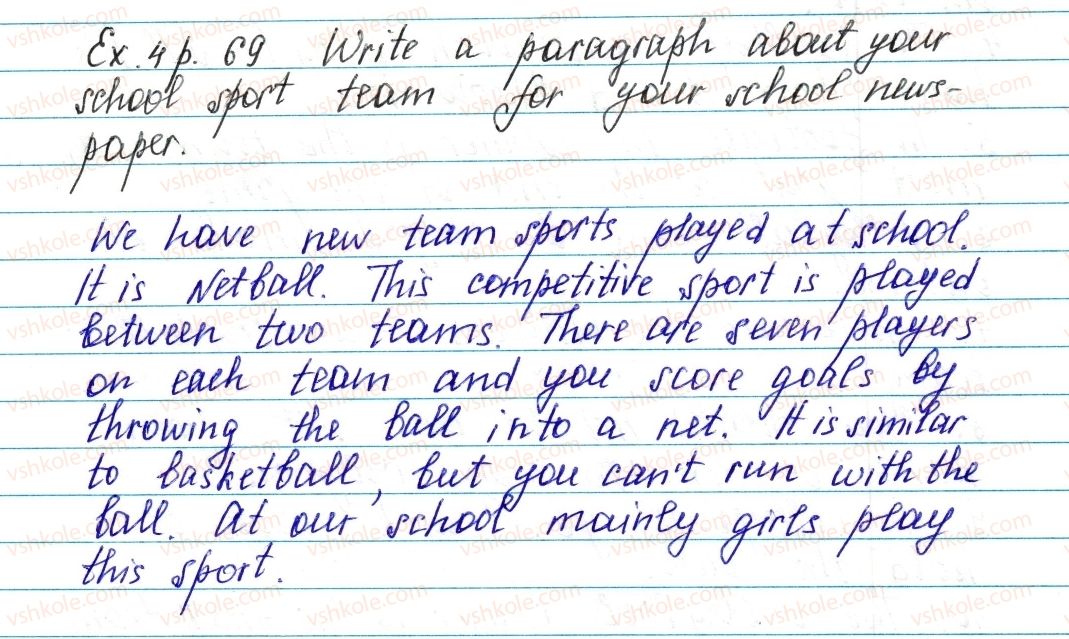 Ex. 4 p. 69 Write a paragraph about your
school sport team for your school news-
paper.
We have new team sports played at school.
It is Netball. This competitive sport is played
between two teams. There are seven players
on each team and you score goals by
throwing the ball into a net. It is similar
to basketball, but you can't run with the
ball. At our school mainly girls play
this sport.